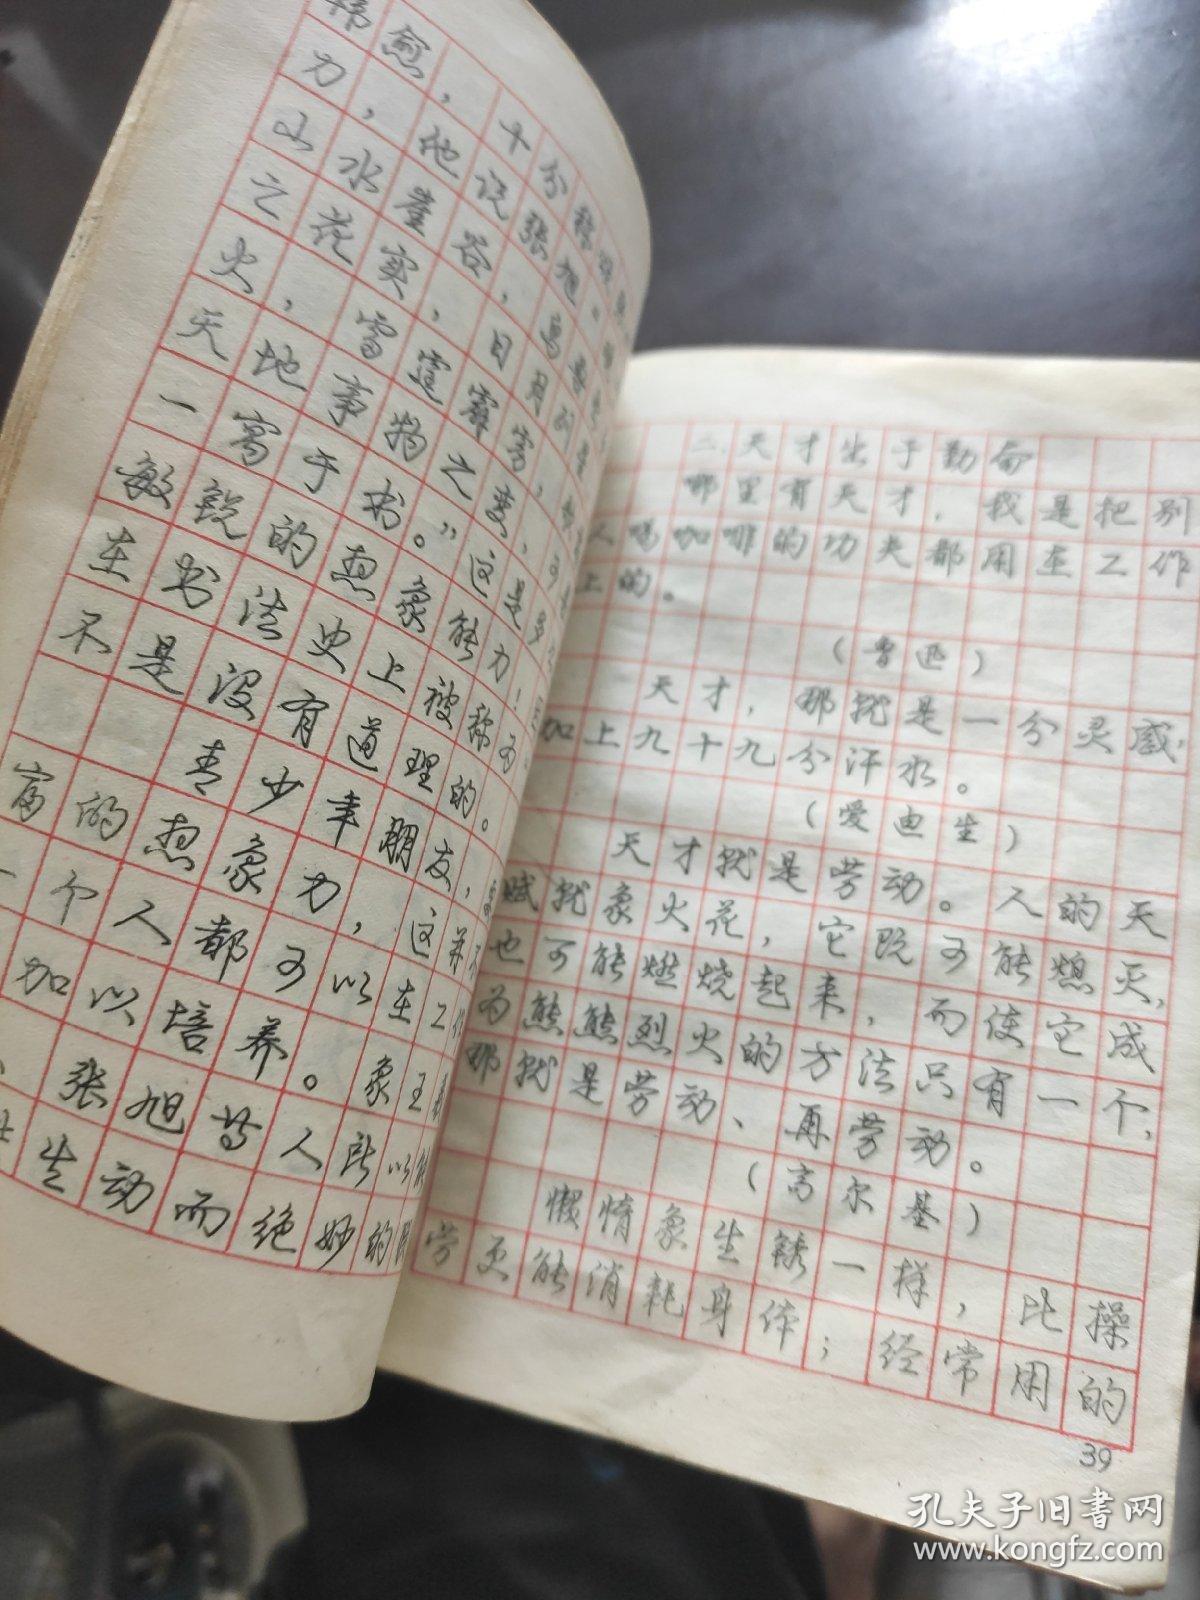 韩愈，十分称
力，他说张旭“
山水崖谷，鸟兽虫
之花实，日月列星
火，雷霆霹雳，歌
天地事物之变，可
一寓于书。”这是多
敏锐的想象能力！
在书法史上被称为
不是没有道理的。
青少年朋友，
富的想象力，这并不
一个人都可以在工作
加以培养。象王羲
、张旭等人所以能
生动而绝妙的
二.天才出于勤奋
哪里有天才，我是把别
人喝咖啡的功夫都用在工作
上的。
（鲁迅）
天才，那就是一分灵感，
加上九十九分汗水。
（爱迪生）
天才就是劳动。人的天
赋就象火花，它既可能熄灭，
也可能燃烧起来，而使它成
为熊熊烈火的方法只有一个，
那就是劳动、再劳动。
（高尔基）
懒惰象生锈一样，比操
劳更能消耗身体；经常用的
39
孔夫子旧书网
www.kongfz.com